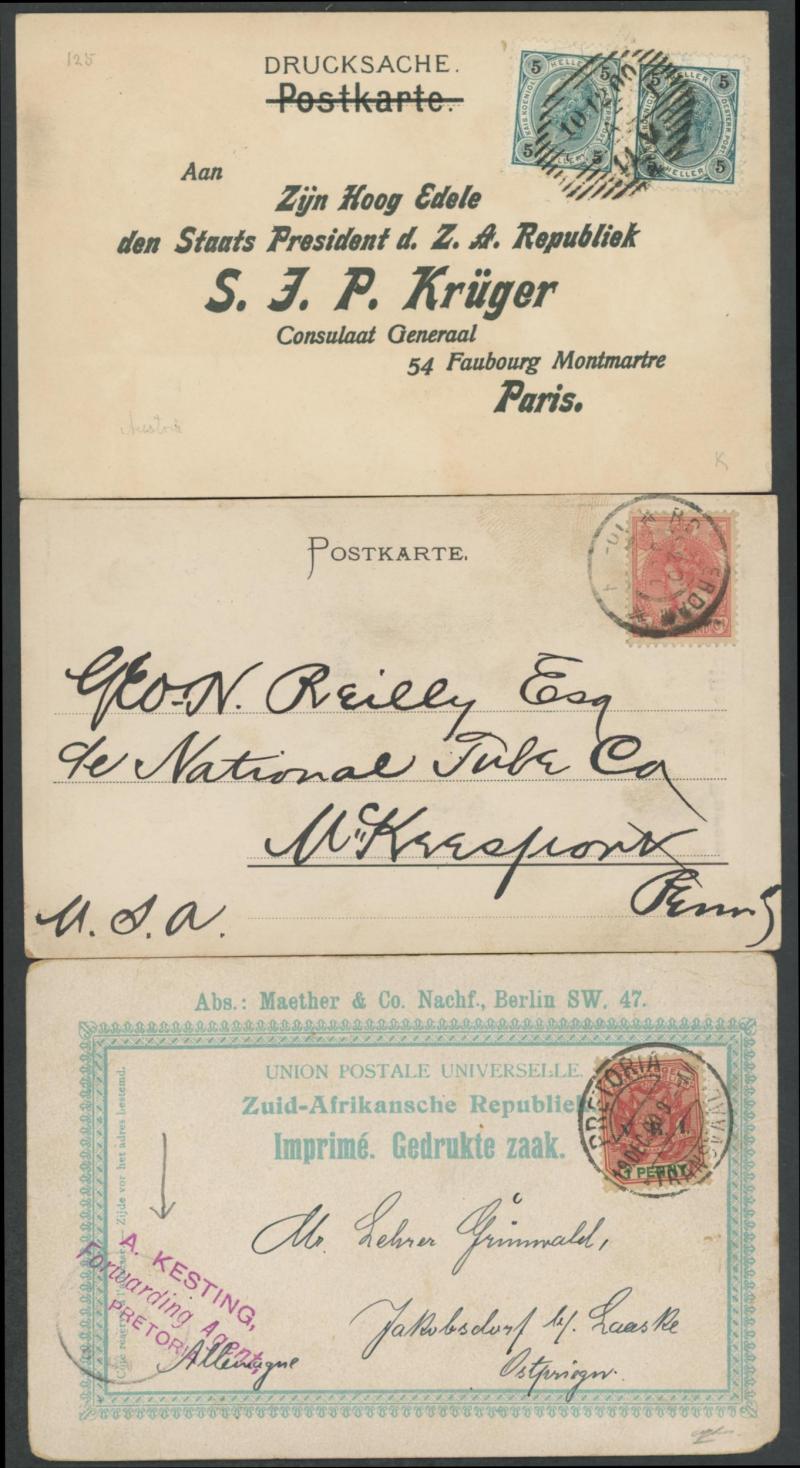 125
DRUCKSACHE.
Postkarte.
5 HELLER 5
5 5
5 HELLER 5
5 HELLER 5
10 12 00
Aan
Zijn Hoog Edele
den Staats President d. Z. A. Republiek
S. J. P. Krüger
Consulaat Generaal
54 Faubourg Montmartre
Paris.
K
POSTKARTE.
Geo. N. Reilly Esq
c/o National Tube Co
McKeesport
Penn
U. S. A.
Abs.: Maether & Co. Nachf., Berlin SW. 47.
UNION POSTALE UNIVERSELLE.
Zuid-Afrikansche Republiek
Imprimé. Gedrukte zaak.
PRETORIA
TRANSVAAL
V.R.I.
1 PENNY
Zijde voor het adres bestemd.
A. KESTING,
Forwarding Agent,
PRETORIA
Mr. Lehrer Grünwald,
Jakobsdorf b/. Laaske
Allemagne
Ostprign.